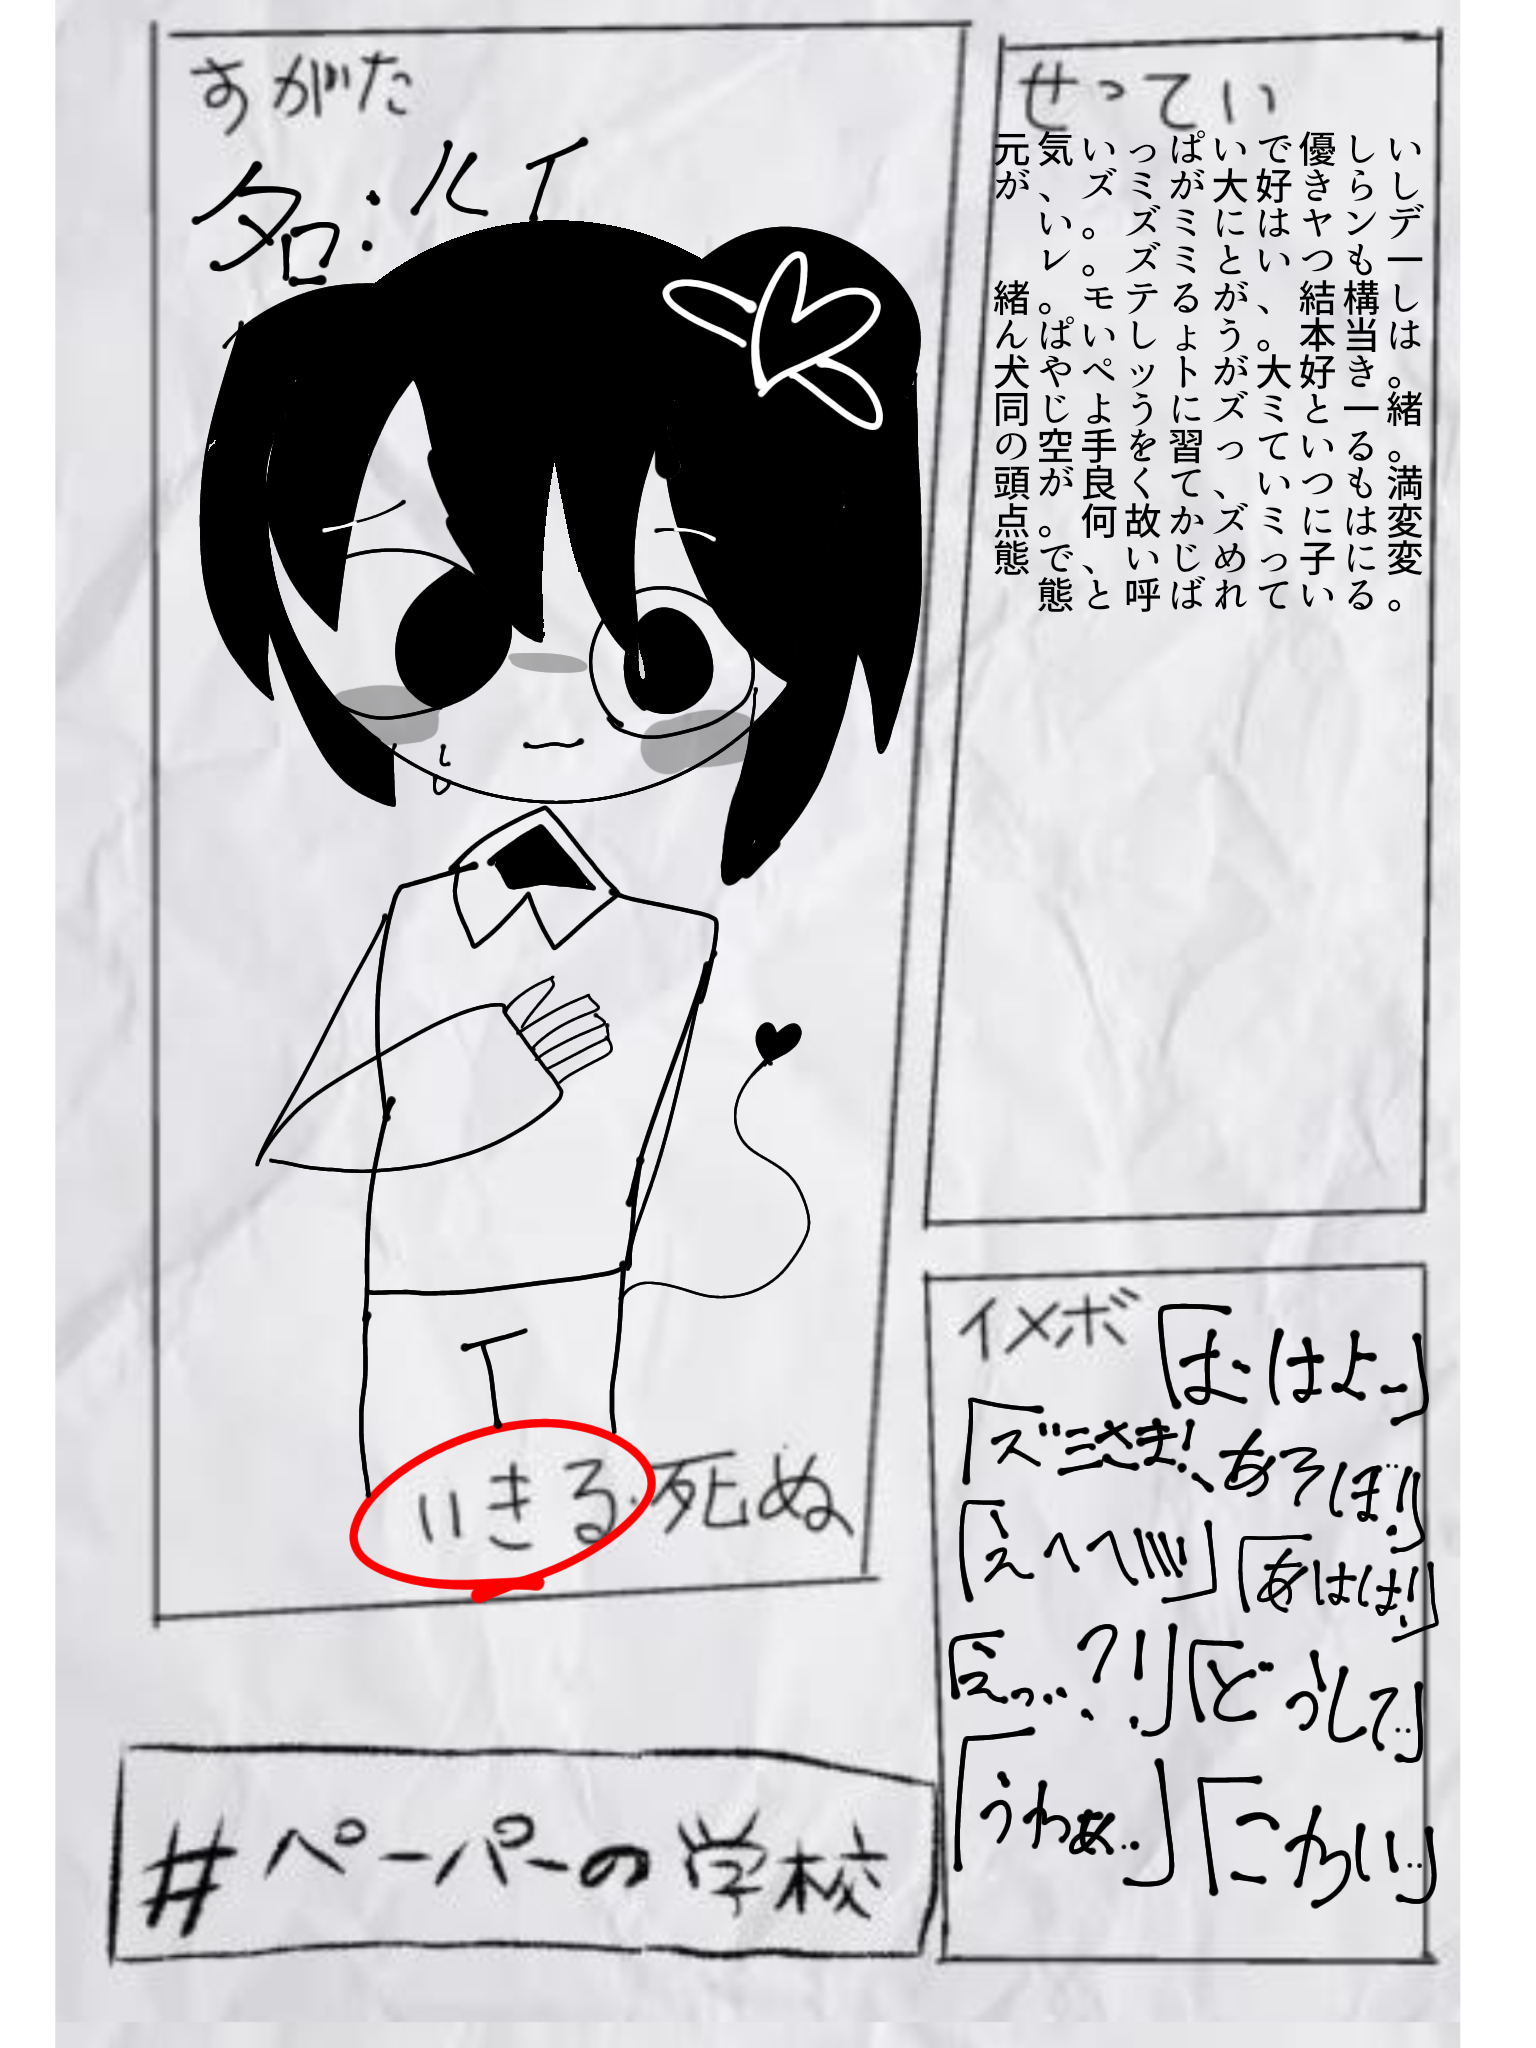 すがた
名:ルイ
せってい
元気いっぱいで優しい
が、ズミが大好きらし
い。ズミにはヤンデ
レ。ズミといつも一
緒。モテるが、結構し
んぱいしょう。本当は
犬やペットが大好き。
同じようにズミと一緒
の空手を習っている。
頭が良くて、いつも満
点。何故かズミには変
態で、いじめっ子に変
態と呼ばれている。
いきる・死ぬ
イメボ
「おはよー」
「ズミさき!、あそぼ!!」
「えへへ////」
「あはは!!」
「えっ…?!」
「どうして…」
「うわぁ…」
「こわい…」
#ペーパーの学校